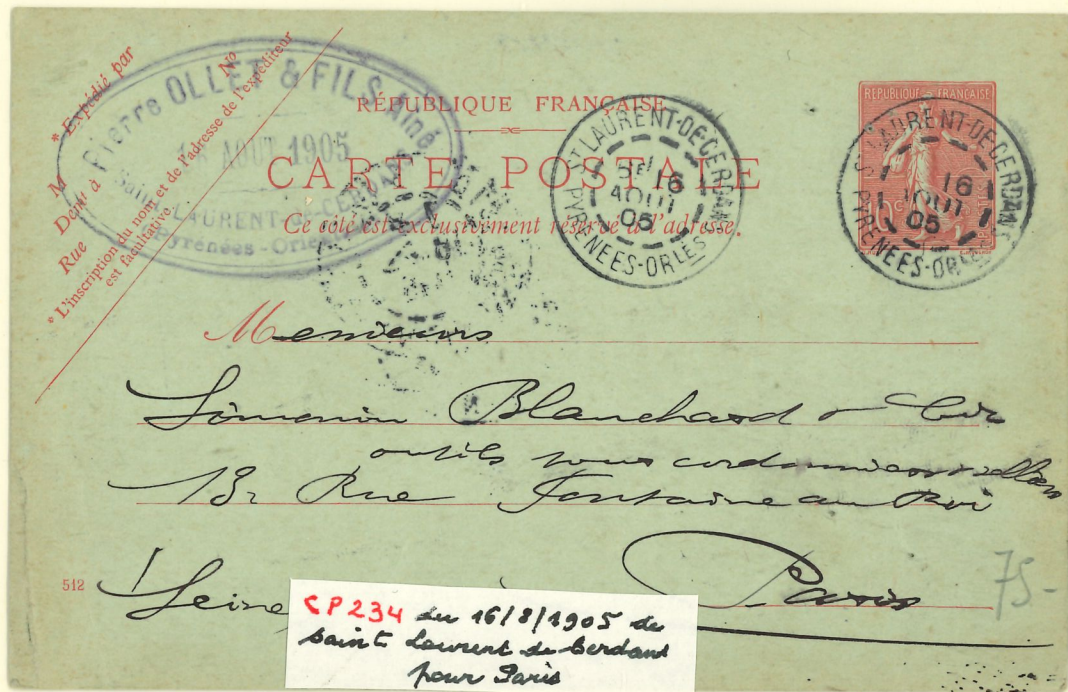 * Expédié par
M Nº
Demt à
Rue
* L'inscription du nom et de l'adresse de l'expéditeur
est facultative
Pierre OLLET & FILS Aîné
16 AOUT 1905
Saint-LAURENT-de-CERDANS
Pyrénées-Orientales
RÉPUBLIQUE FRANÇAISE
CARTE POSTALE
Ce côté est exclusivement réservé à l'adresse.
ST LAURENT-DE-CERDANS
16
AOUT
05
PYRÉNÉES-ORLES
REPUBLIQUE FRANÇAISE
ST LAURENT-DE-CERDANS
16
AOUT
05
PYRÉNÉES-ORLES
Messieurs
Simonin Blanchard & Cie
outils pour cordonniers selliers
13, Rue Fontaine au Roi
Paris
Seine
512
75-
CP234 du 16/8/1905 de
Saint Laurent de Cerdans
pour Paris